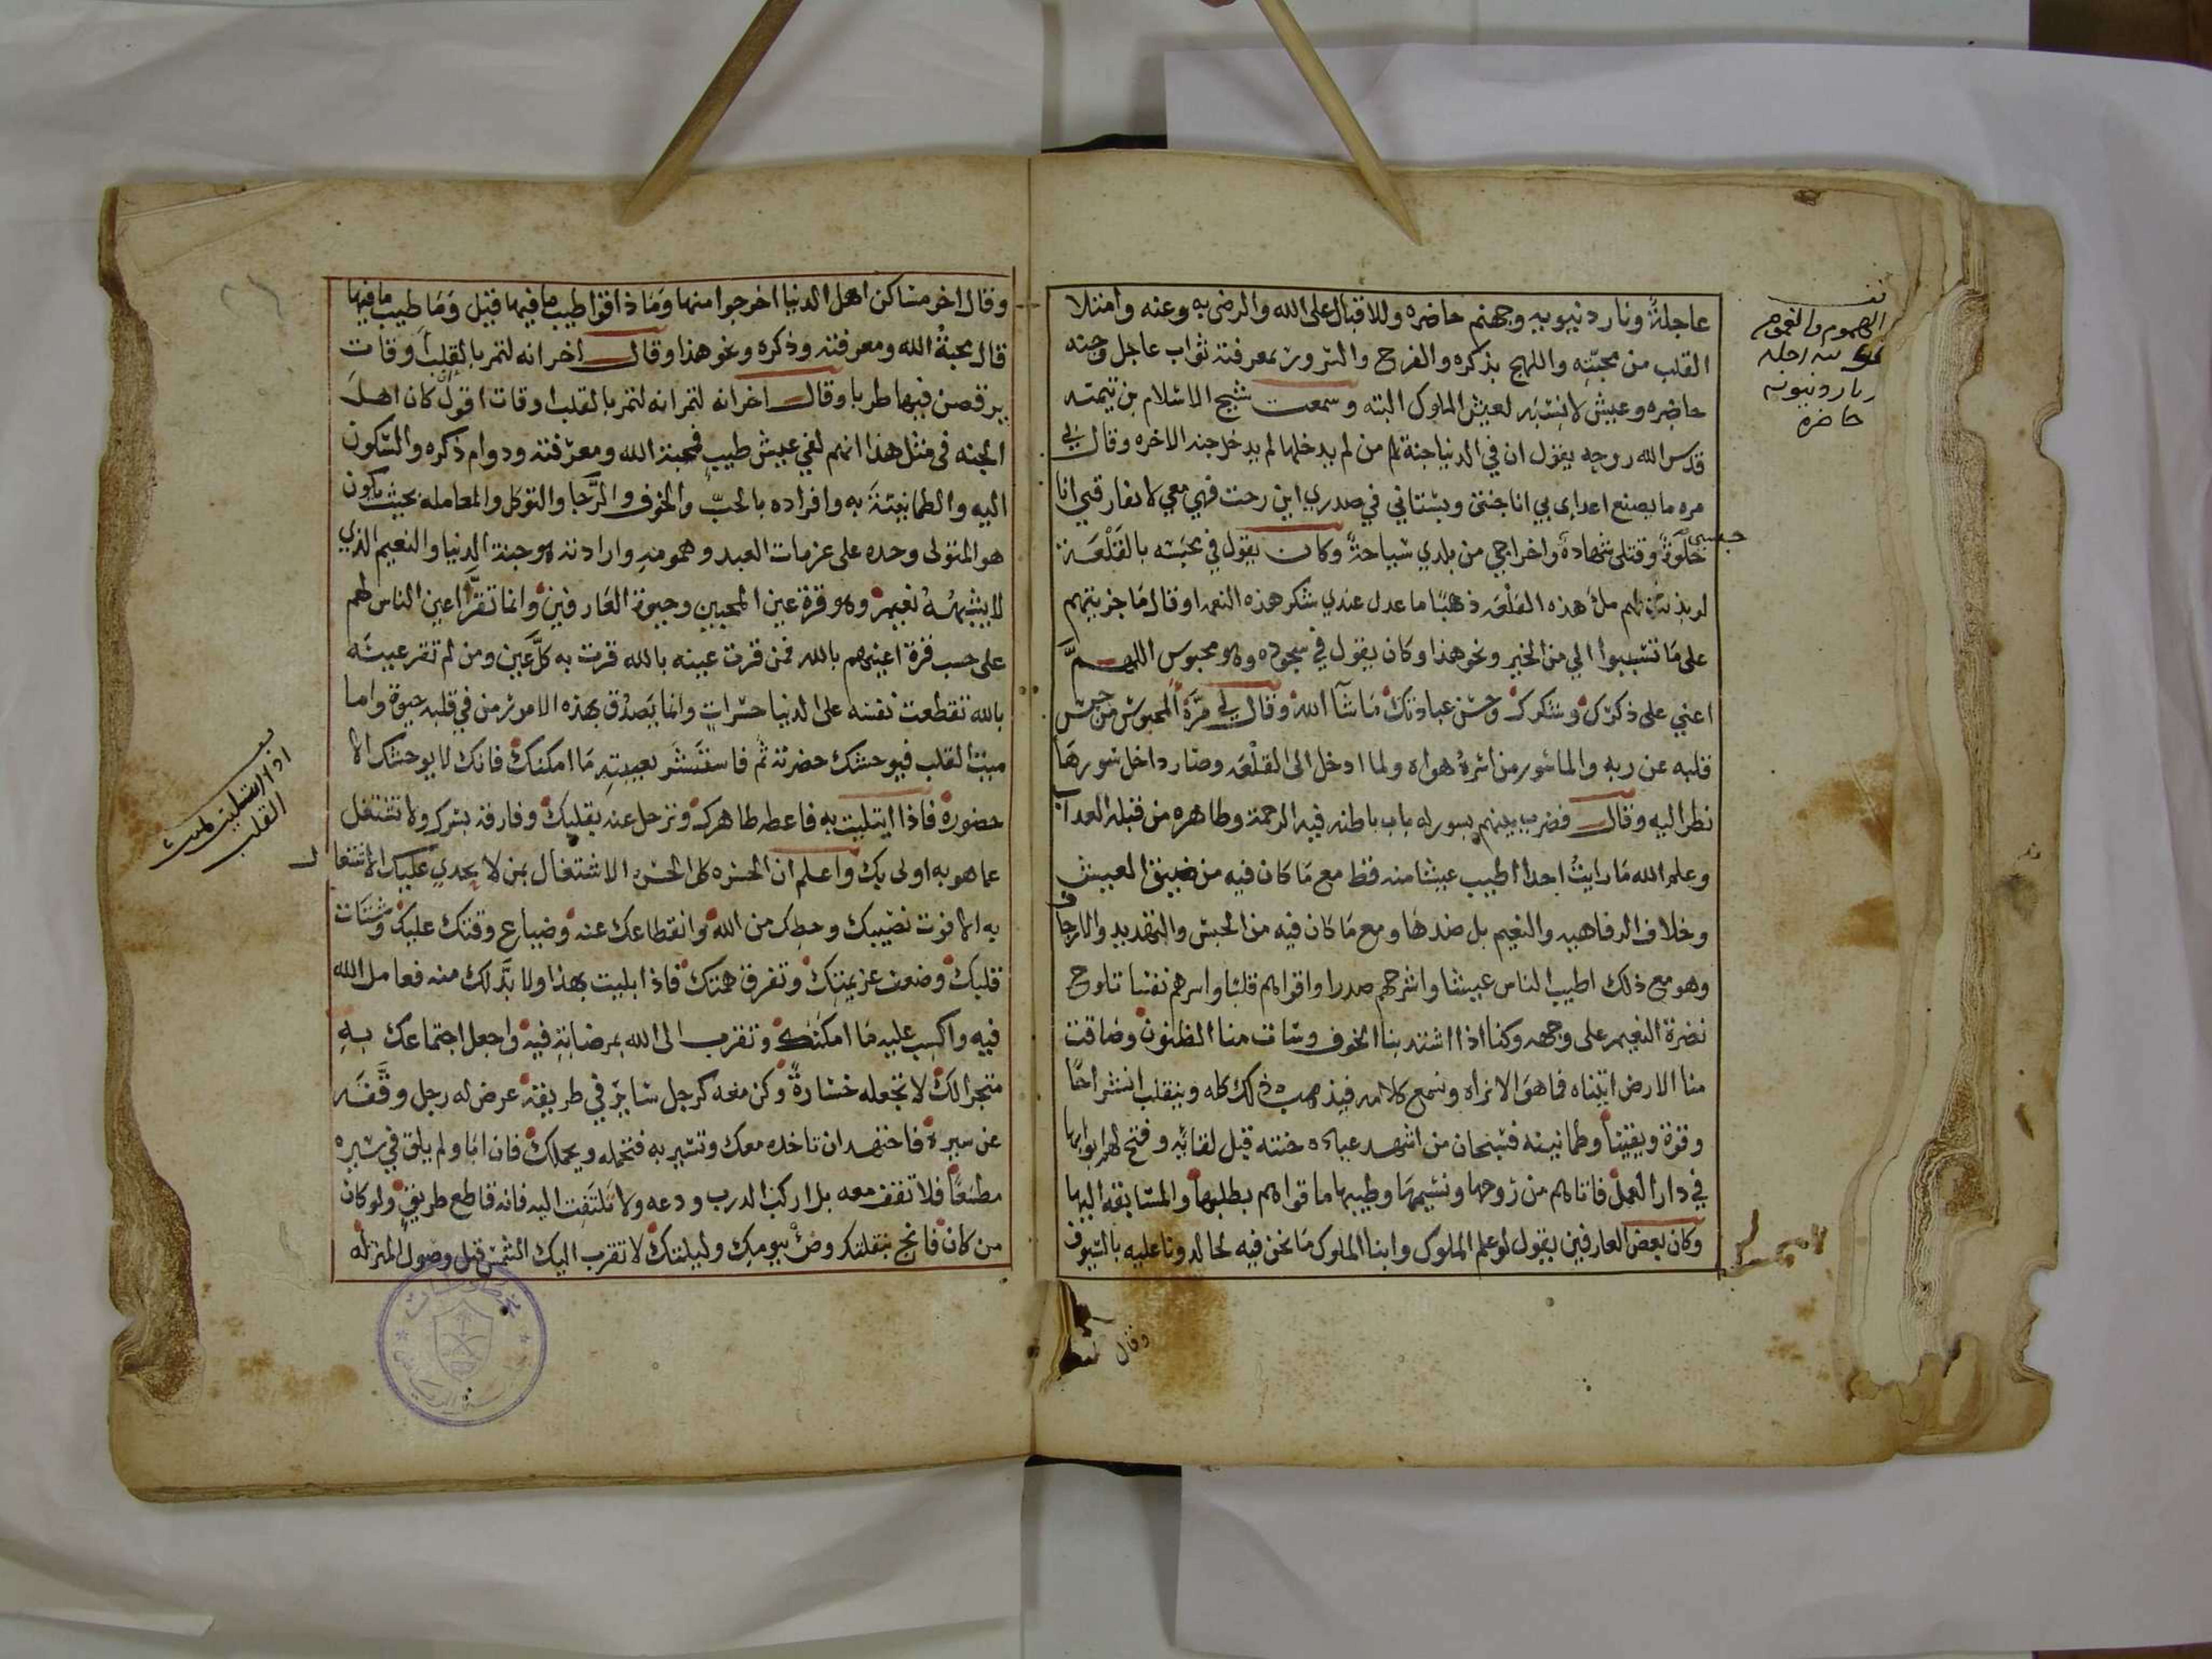 عاجلة ونار دنيويه وجهنم حاضره وللاقبال على الله والرضى به وعنه وامتلا
القلب من محبته واللهج بذكره والفرح والسرور بمعرفته ثواب عاجل وجنه
حاضره وعيش لا نسبه لعيش الملوك البته وسمعت شيخ الاسلام بن تيميه
قدس الله روحه يقول ان في الدنيا جنة من لم يدخلها لم يدخل جنه الاخره وقال لي
مره ما يصنع اعداي بي انا جنتي وبستاني في صدري اين رحت فهي معي لا تفارقني انا
حبسي خلوة وقتلى شهادة واخراجي من بلدي سياحة وكان يقول في محبسه بالقلعة
لو بذلت لهم ملء هذه القلعه ذهبا ما عدل عندي شكر هذه النعمه او قال ما جزيتهم
على ما تسببوا الي من الخير ونحو هذا وكان يقول في سجوده وهو محبوس اللهم
اعني على ذكرك وشكرك وحسن عبادتك ما شآ الله وقال لي مرة المحبوس من حبس
قلبه عن ربه والماسور من اسره هواه ولما ادخل الى القلعه وصار داخل سورها
نظر اليه وقال فضرب بينهم بسور له باب باطنه فيه الرحمة وظاهره من قبله العذاب
وعلم الله ما رايت احدا اطيب عيشا منه قط مع ما كان فيه من ضيق العيش
وخلاف الرفاهيه والنعيم بل ضدها ومع ما كان فيه من الحبس والتهديد والارجاف
وهو مع ذلك اطيب الناس عيشا واشرحهم صدرا واقواهم قلبا واسرهم نفسا تلوح
نضرة النعيم على وجهه وكنا اذا اشتد بنا الخوف وسات منا الظنون وضاقت
منا الارض اتيناه فما هو الا نراه ونسمع كلامه فيذهب ذلك كله وينقلب انشراحا
وقوة ويقينا وطمانينه فسبحان من اشهد عباده جنته قبل لقائه وفتح لهم ابوابها
في دار العمل فاتاهم من روحها ونسيمها وطيبها ما قواهم بطلبها والمسابقه اليها
وكان بعض العارفين يقول لو علم الملوك وابنا الملوك ما نحن فيه لجالدونا عليه بالسيوف
وقال
الهموم والغموم
ونار دنيويه
حاضره
وقال اخر مساكن اهل الدنيا اخرجوا منها وما ذاقوا طيب ما فيها قيل وما طيب ما فيها
قال محبة الله ومعرفته وذكره ونحو هذا وقال اخر انه لتمر بالقلب اوقات
يرقص فيها طربا وقال اخر انه لتمر انه لتمر بالقلب اوقات اقول ان كان اهل
الجنه في مثل هذا انهم لفي عيش طيب فمحبة الله ومعرفته ودوام ذكره والسكون
اليه والطمانينة به وافراده بالحب والخوف والرجا والتوكل والمعامله بحيث يكون
هو المتولى وحده على عزمات العبد وهمومه وارادته هو جنة الدنيا والنعيم الذي
لا يشبهه نعيم وهو قرة عين المحبين وحيوة العارفين وانما تقر اعين الناس لهم
على حسب قرة اعينهم بالله فمن قرت عينه بالله قرت به كل عين ومن لم تقر عينه
بالله تقطعت نفسه على الدنيا حسرات وانما يصدق بهذه الامور من في قلبه حيوة واما
ميت القلب فيوحشك حضرته ثم فاستسر بغيبته ما امكنك فانك لا يوحشك الا
حضوره فاذا ابتليت به فاعطه ظاهرك وترحل عنه بقلبك وفارقه بسرك ولا تشتغل
عما هو به اولى بك واعلم ان الحسره كل الحسره الاشتغال بمن لا يجدي عليك الاشتغال
به الا فوت نصيبك وحظك من الله وانقطاعك عنه وضياع وقتك عليك وشتات
قلبك وضعف عزيمتك وتفرق همتك فاذا بليت بهذا ولا بد لك منه فعامل الله
فيه واكسب عليه ما امكنك وتقرب الى الله بمرضاته فيه واجعل اجتماعك به
متجرا لك لا تجعله خسارة وكن معه كرجل سائر في طريقه عرض له رجل وقفه
عن سيره فاجتهد ان تاخذه معك وتسير به فتحمله ويحملك فان ابا ولم يلق في سيره
مطمعا فلا تقف معه بل اركب الدرب ودعه ولا تلتفت اليه فانه قاطع طريق ولو كان
من كان فانج بقلبك وضن بيومك وليلتك لا تقرب اليك الشمس قبل وصول المنزله
اذا ابتليت بميت
القلب